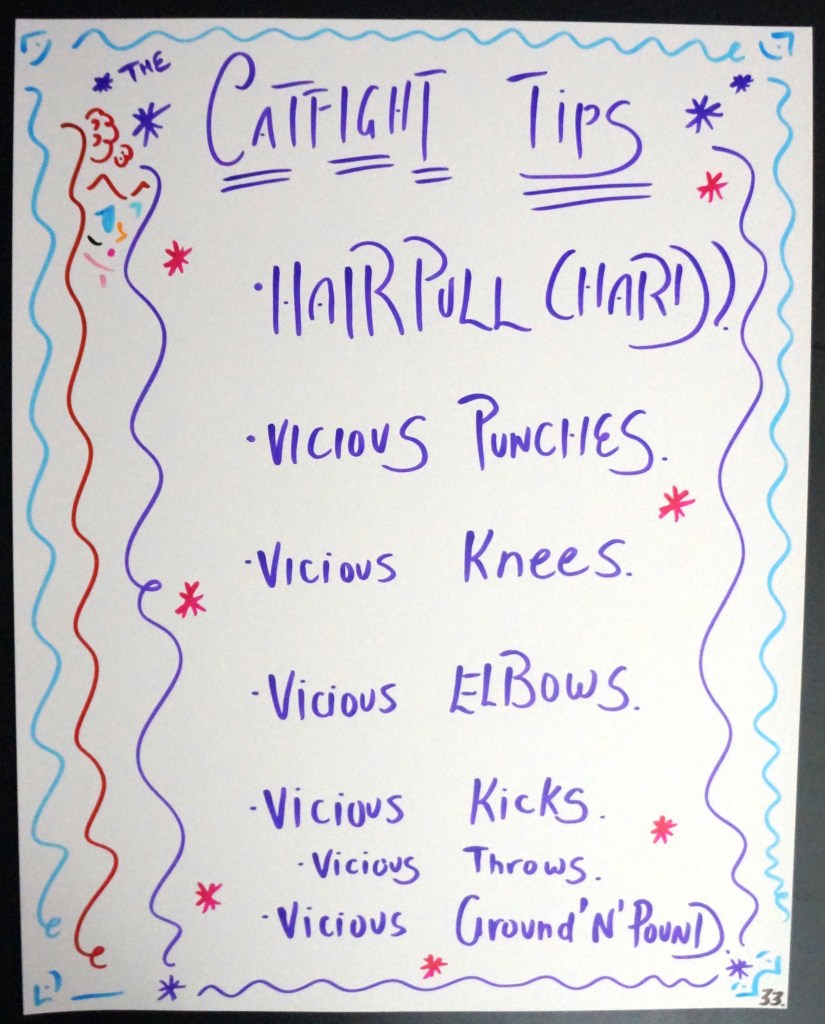 THE
CATFIGHT TiPS
·HAIRPULL (HARD)!
·VICIOUS PUNCHES.
·VICIOUS Knees.
·Vicious ELBOWS.
·Vicious Kicks.
·Vicious Throws.
·Vicious Ground'N'POUND.
33.